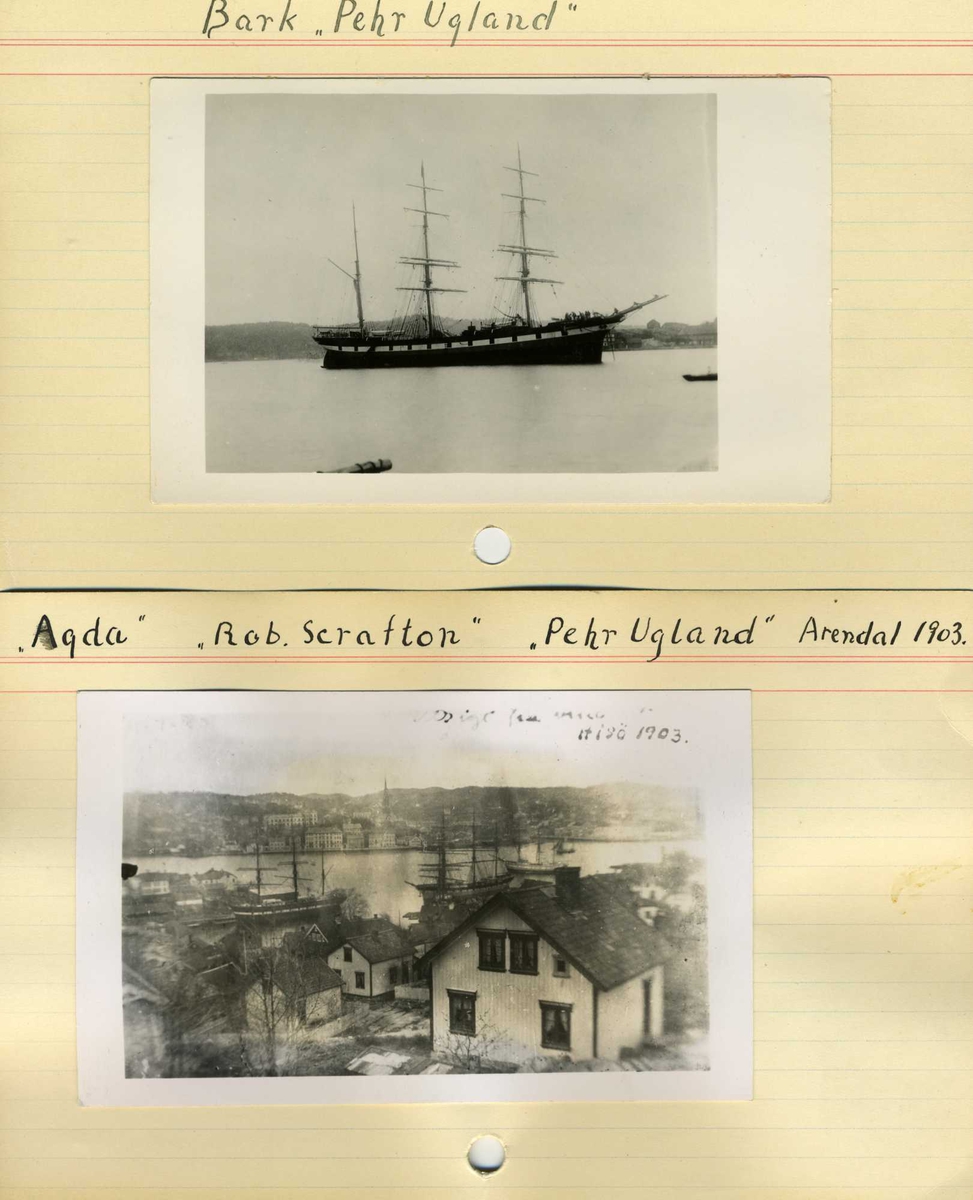 Bark „Pehr Ugland"
„Agda" „Rob. Scrafton" „Pehr Ugland" Arendal 1903.
fra
Hisö 1903.